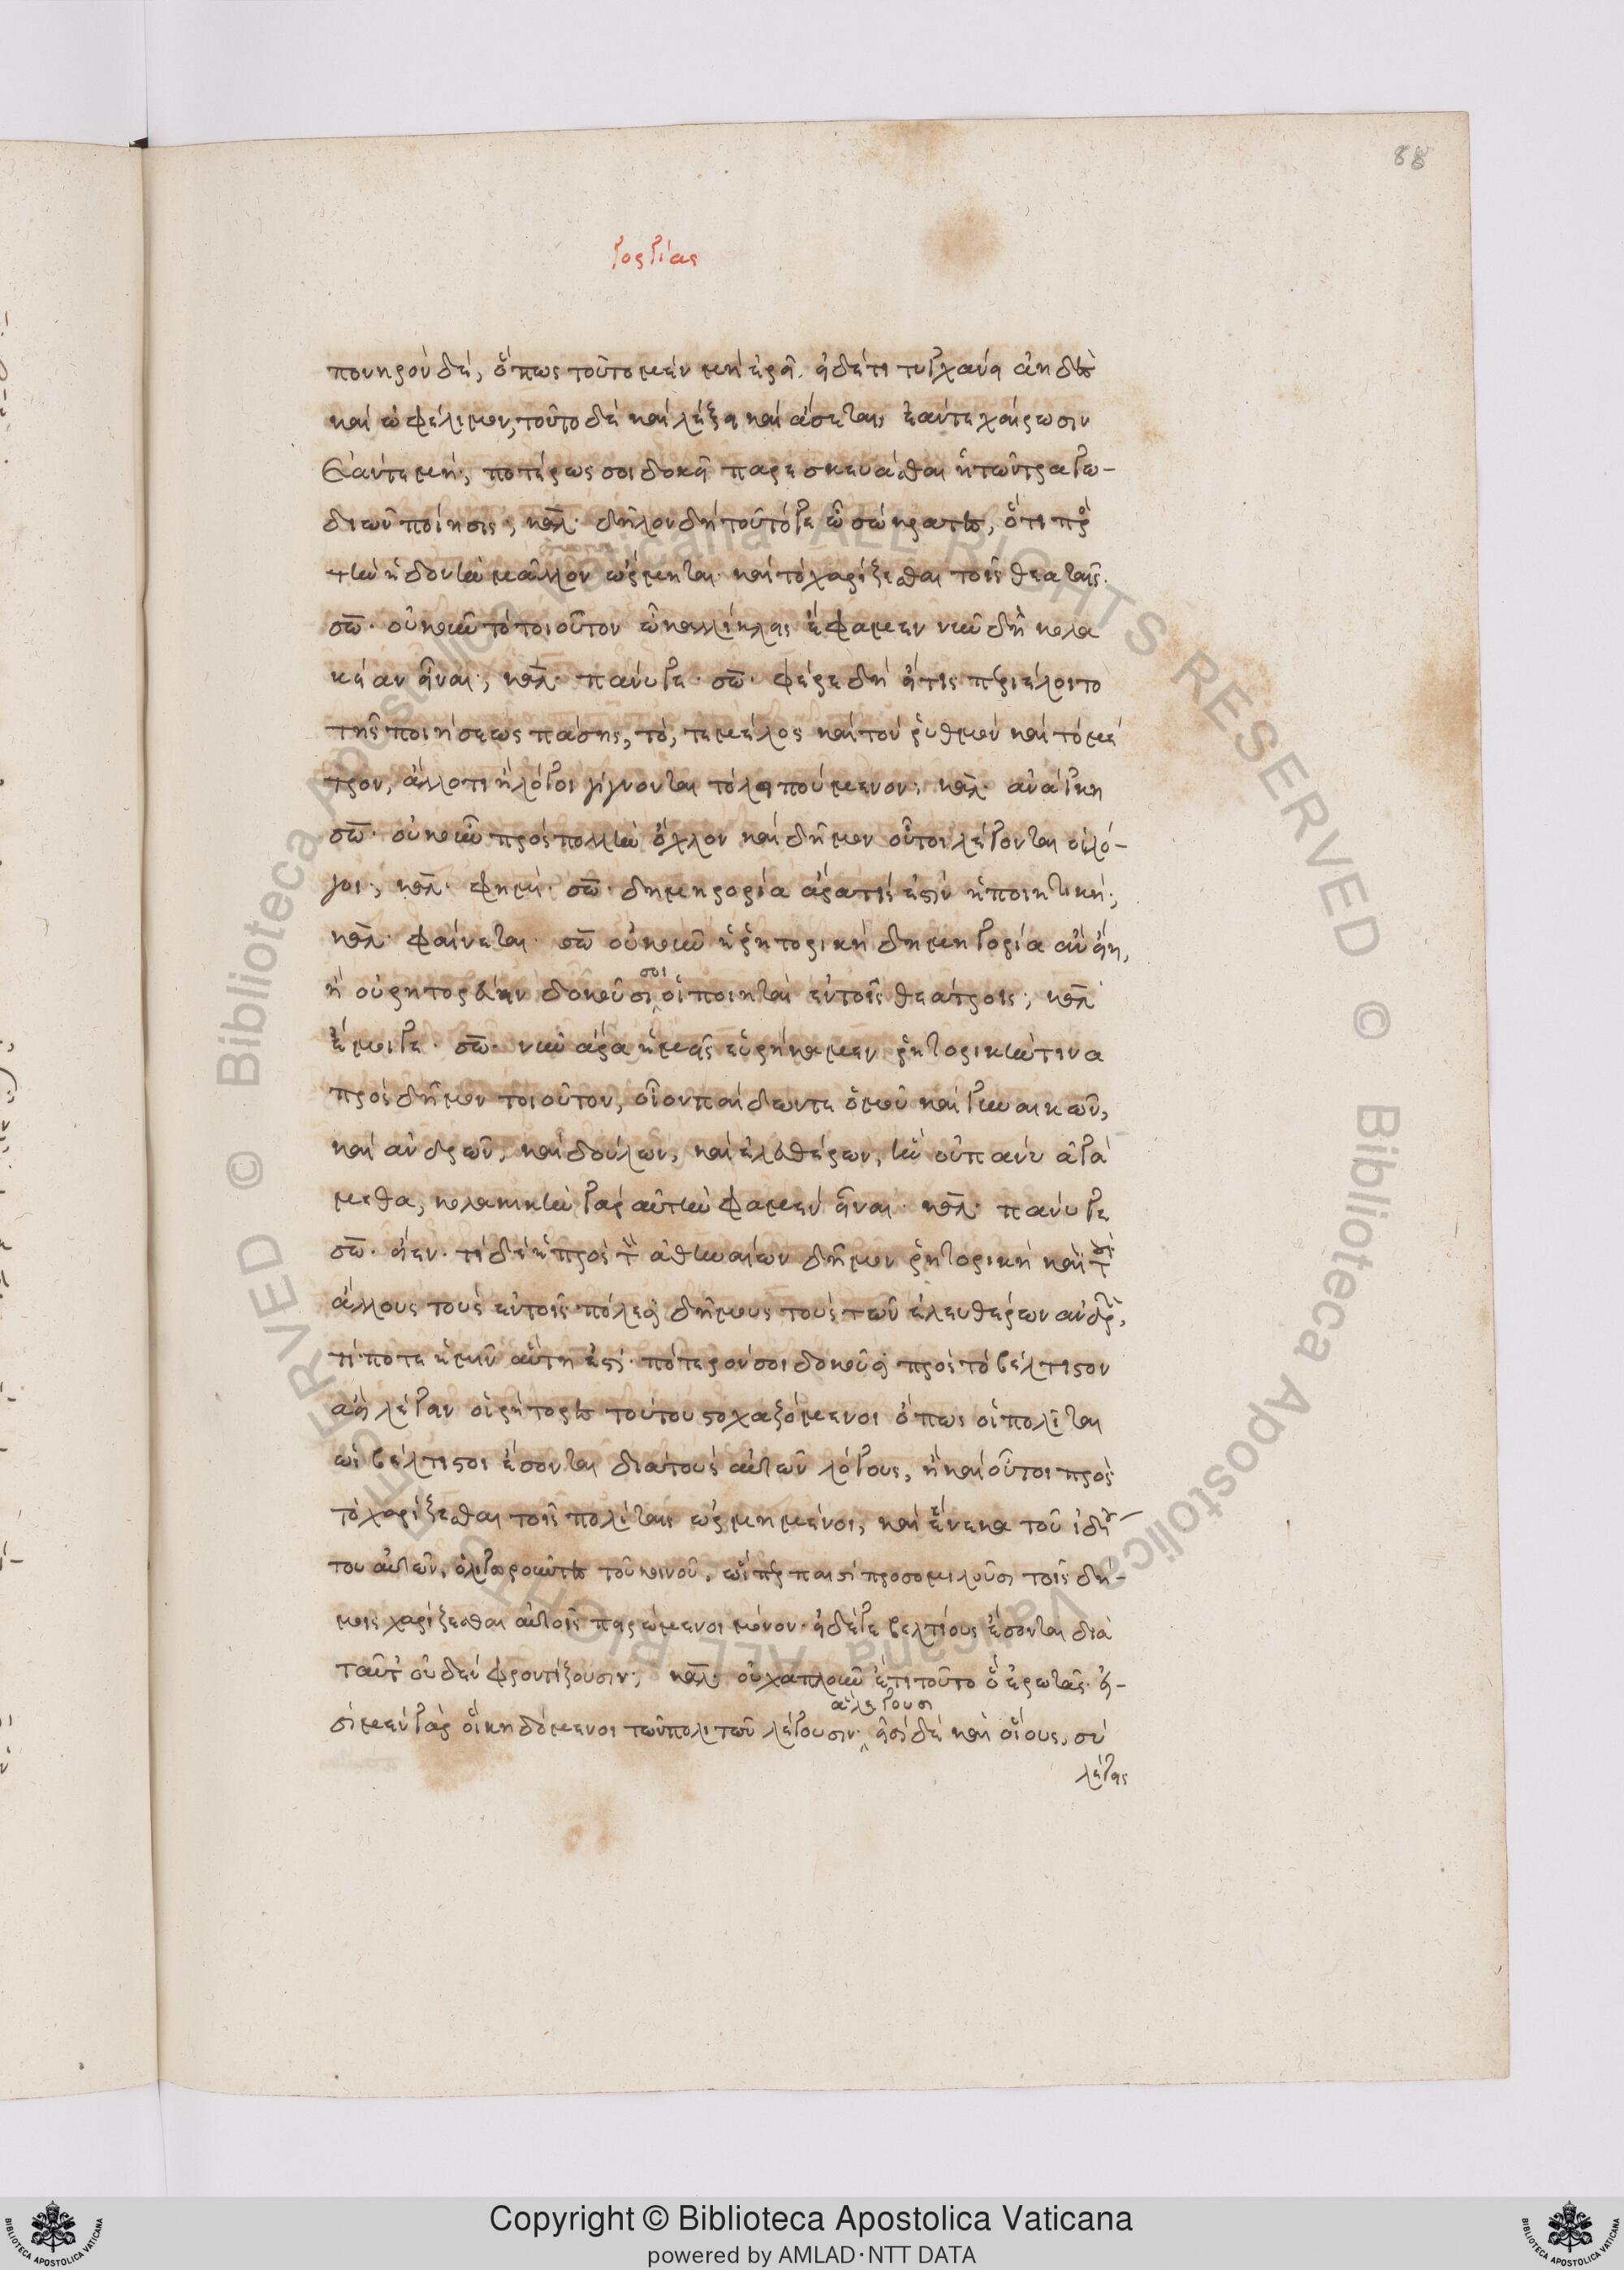 88
γοργίας
πονηρὸν δὲ, ὅπως τοῦτο μὲν μὴ ἐρεῖ. εἰ δέ τι τυγχάνει ἀηδὲς
καὶ ὠφέλιμον, τοῦτο δὲ καὶ λέξει καὶ ἄσεται, ἐάντε χαίρωσιν
ἐάντε μή; ποτέρως σοι δοκεῖ παρεσκευάσθαι ἡ τῶν τραγω-
διῶν ποίησις; καλ. δῆλον δὴ τοῦτό γε ὦ σώκρατες, ὅτι πρὸς
τὴν ἡδονὴν μᾶλλον ὥρμηται. καὶ τὸ χαρίζεσθαι τοῖς θεαταῖς.
σω. οὐκοῦν τὸ τοιοῦτον ὦ καλλίκλεις ἔφαμεν νῦν δὴ κολα
κείαν εἶναι; καλ. πάνυ γε. σω. φέρε δὴ εἴ τις περιέλοιτο
τῆς ποιήσεως πάσης, τό, τε μέλος καὶ τὸν ῥυθμὸν καὶ τὸ μέ
τρον, ἄλλο τι ἢ λόγοι γίγνονται τὸ λειπόμενον; καλ. ἀνάγκη
σω. οὐκοῦν πρὸς πολλὺν ὄχλον καὶ δῆμον οὗτοι λέγονται οἱ λό-
γοι; καλ. φημί. σω. δημηγορία ἄρα τίς ἐστιν ἡ ποιητική;
καλ. φαίνεται. σω οὐκοῦν ἡ ῥητορικὴ δημηγορία ἂν εἴη,
ἢ οὐ ῥητορεύειν δοκοῦσί σοι οἱ ποιηταὶ ἐν τοῖς θεάτροις; καλ
ἔμοιγε. σω. νῦν ἄρα ἡμεῖς εὑρήκαμεν ῥητορικήν τινα
πρὸς δῆμον τοιοῦτον, οἷον παίδων τε ὁμοῦ καὶ γυναικῶν,
καὶ ἀνδρῶν, καὶ δούλων, καὶ ἐλευθέρων, ἣν οὐ πάνυ ἀγά
μεθα, κολακικὴν γὰρ αὐτὴν φαμὲν εἶναι. καλ. πάνυ γε
σω. εἶεν. τί δὲ ἡ πρὸς τὸν ἀθηναίων δῆμον ῥητορικὴ καὶ τοὺς
ἄλλους τοὺς ἐν τοῖς πόλεσι δήμους τοὺς τῶν ἐλευθέρων ἀνδρῶν,
τί ποτε ἡμῖν αὕτη ἐστί. πότερόν σοι δοκοῦσι πρὸς τὸ βέλτιστον
ἀεὶ λέγειν οἱ ῥήτορες τούτου στοχαζόμενοι ὅπως οἱ πολῖται
ὡς βέλτιστοι ἔσονται διὰ τοὺς αὐτῶν λόγους, ἢ καὶ οὗτοι πρὸς
τὸ χαρίζεσθαι τοῖς πολίταις ὡρμημένοι, καὶ ἕνεκα τοῦ ἰδίου
του αὐτῶν, ὀλιγωροῦντες τοῦ κοινοῦ, ὥσπερ παισὶ προσομιλοῦσι τοῖς δή-
μοις χαρίζεσθαι αὐτοῖς πειρώμενοι μόνον. εἰ δέ γε βελτίους ἔσονται διὰ
ταῦτ' οὐδὲν φροντίζουσιν; καλ. οὐχ ἁπλοῦν ἔτι τοῦτο ὃ ἐρωτᾶς. εἰ-
σὶ μὲν γὰρ οἳ κηδόμενοι τῶν πολιτῶν λέγουσιν ἃ λέγουσι. εἰσὶ δὲ καὶ οἵους, σὺ
λέγεις
Copyright © Biblioteca Apostolica Vaticana
powered by AMLAD·NTT DATA